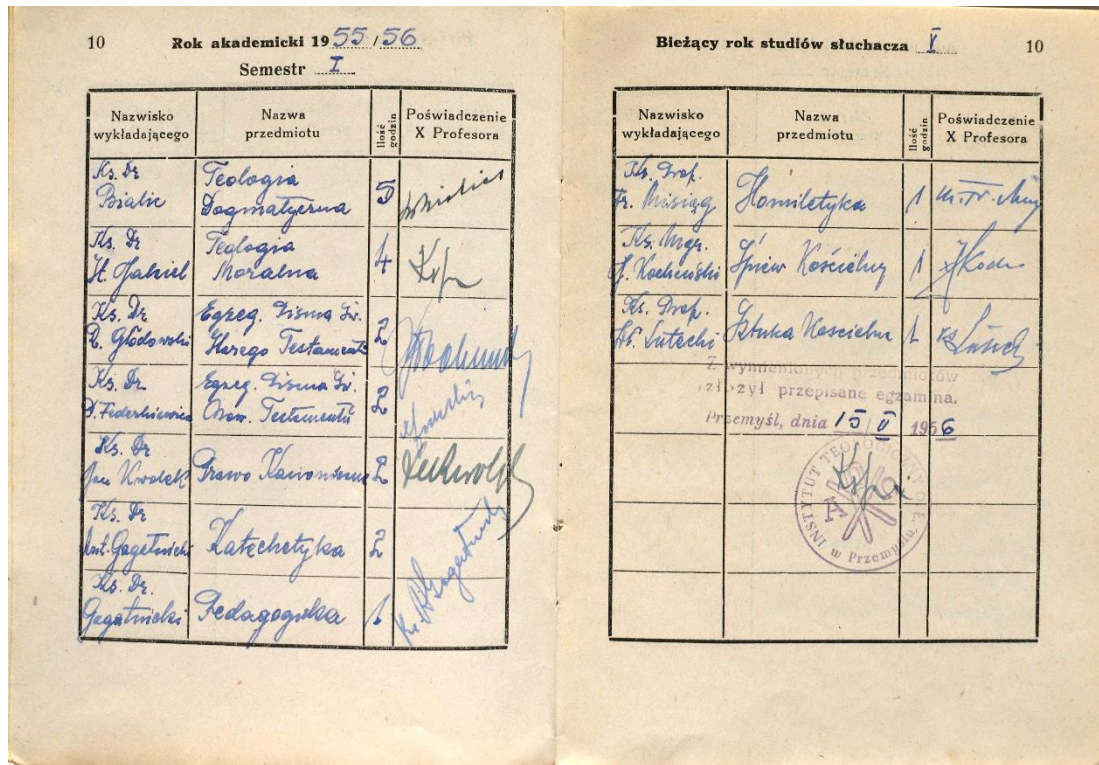 10 Rok akademicki 1955/56
Semestr I
Nazwisko wykładającego
Nazwa przedmiotu
Ilość godzin
Poświadczenie X Profesora
Ks. Dr
Bialic
Teologia
Dogmatyczna
5
Ks. Dr
St. Gabiel
Teologia
Moralna
4
Ks. Dr
R. Głodowski
Egzeg. Pisma Św.
Starego Testamentu
2
Ks. Dr
J. Federkiewicz
Egzeg. Pisma Św.
Now. Testamentu
2
Ks. Dr
Jan Kwolek
Prawo Kanoniczne
2
Ks. Dr
Ant. Gagatnicki
Katechetyka
2
Ks. Dr.
Gagatnicki
Pedagogika
1
Ks. Gagatnicki
Bieżący rok studiów słuchacza V 10
Nazwisko wykładającego
Nazwa przedmiotu
Ilość godzin
Poświadczenie X Profesora
Ks. Prof.
Fr. Misiąg
Homiletyka
1
Ks. Mgr.
Śpiew Kościelny
1
Ks. Prof.
Sztuka Kościelna
1
Z wymienionych przedmiotów
złożył przepisane egzamina.
Przemyśl, dnia 15/V 1956
INSTYTUT TEOLOGICZNY O. Ł.
w Przemyślu